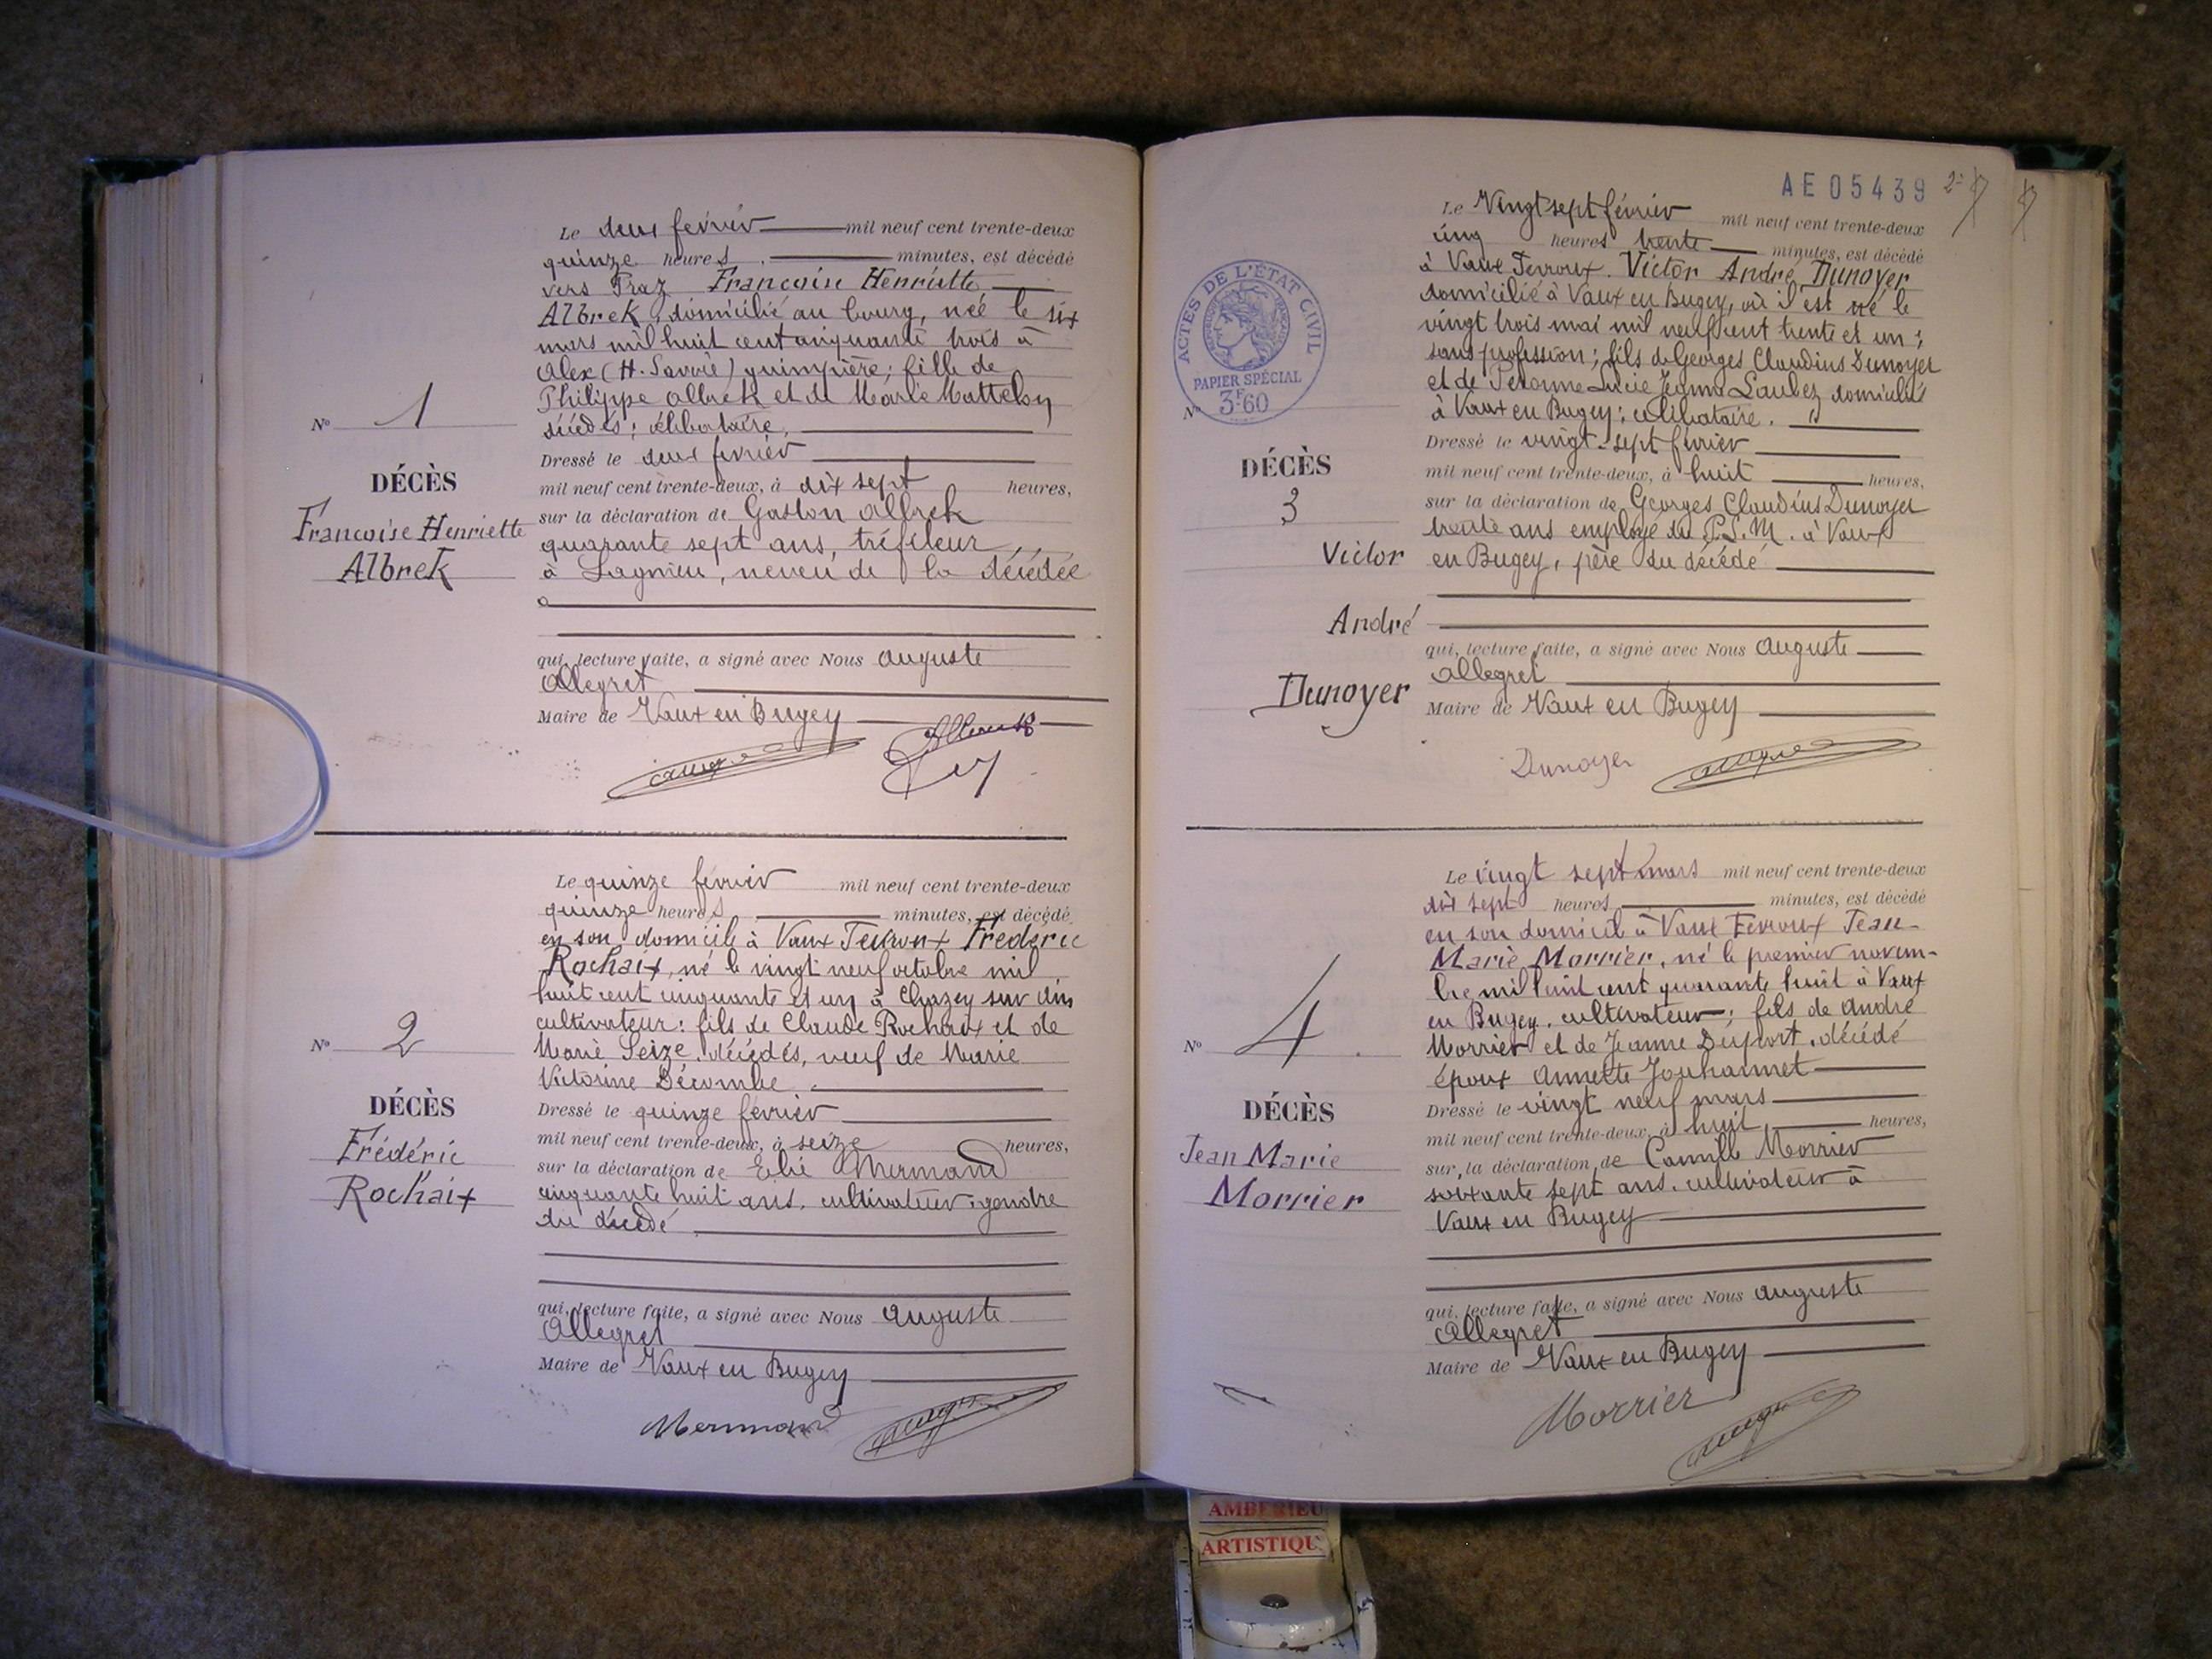 Le deux février mil neuf cent trente-deux
quinze heures minutes, est décédé
vers Praz Françoise Henriette
Albrek, domicilié au bourg, née le six
mars mil huit cent cinquante trois à
Alex (H. Savoie) guimpière; fille de
Philippe Albrek et de Marie Mattelon
décédés; célibataire.
Dressé le deux février
mil neuf cent trente-deux, à dix sept heures,
sur la déclaration de Gaston Albrek
quarante sept ans, tréfileur
à Lagnieu, neveu de la décédée
qui, lecture faite, a signé avec Nous Auguste
Allegret
Maire de Vaux en Bugey
N° 1
DÉCÈS
Françoise Henriette
Albrek
Le quinze février mil neuf cent trente-deux
quinze heures minutes, est décédé
en son domicile à Vaux Fevroux Frédéric
Rochaix, né le vingt neuf octobre mil
huit cent cinquante et un à Chazey sur Ain
cultivateur: fils de Claude Rochaix et de
Marie Seize, décédés, veuf de Marie
Victorine Décombe
Dressé le quinze février
mil neuf cent trente-deux, à seize heures,
sur la déclaration de Elie Mermand
cinquante huit ans, cultivateur, gendre
du décédé
qui, lecture faite, a signé avec Nous Auguste
Allegret
Maire de Vaux en Bugey
Mermand
N° 2
DÉCÈS
Frédéric
Rochaix
AE05439
ACTES DE L'ÉTAT CIVIL
PAPIER SPÉCIAL
3F60
Le Vingt sept février mil neuf cent trente-deux
cinq heures trente minutes, est décédé
à Vaux Fevroux Victor André Dunoyer
domicilié à Vaux en Bugey, où il est né le
vingt trois mai mil neuf cent trente et un;
sans profession; fils de Georges Claudius Dunoyer
et de Peronne Lucie Jeanne Laubez domiciliés
à Vaux en Bugey; célibataire.
Dressé le vingt-sept février
mil neuf cent trente-deux, à huit heures,
sur la déclaration de Georges Claudius Dunoyer
trente ans employé du P.L.M. à Vaux
en Bugey, père du décédé
qui, lecture faite, a signé avec Nous Auguste
Allegret
Maire de Vaux en Bugey
Dunoyer
N°
DÉCÈS
3
Victor
André
Dunoyer
Le vingt sept mars mil neuf cent trente-deux
dix sept heures minutes, est décédé
en son domicil à Vaux Fevroux Jean-
Marie Morrier, né le premier novem-
bre mil huit cent quarante huit à Vaux
en Bugey, cultivateur; fils de André
Morrier et de Jeanne Duport, décédé
époux Annette Jouhannet
Dressé le vingt neuf mars
mil neuf cent trente-deux, à huit heures,
sur la déclaration de Camille Morrier
soixante sept ans, cultivateur à
Vaux en Bugey
qui, lecture faite, a signé avec Nous Auguste
Allegret
Maire de Vaux en Bugey
Morrier
N° 4
DÉCÈS
Jean Marie
Morrier
AMBERIEU
ARTISTIQU